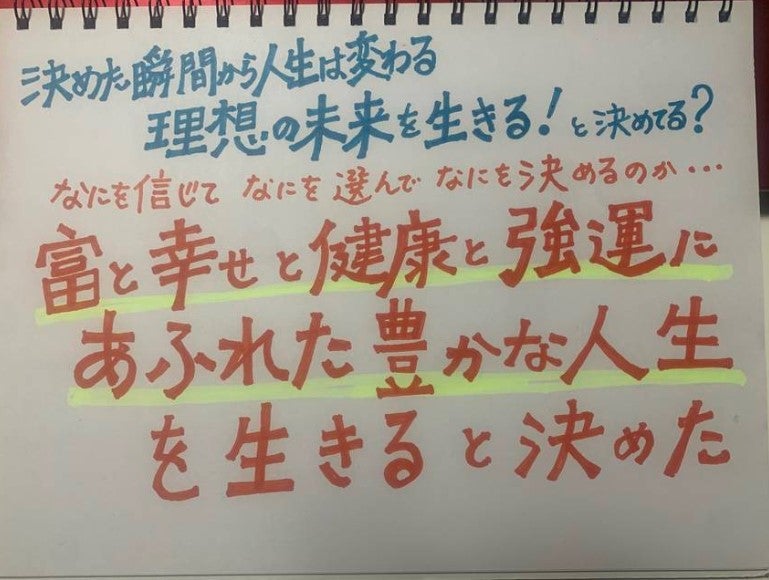 決めた瞬間から人生は変わる
理想の未来を生きる！と決めてる？
なにを信じて なにを選んで なにを決めるのか…
富と幸せと健康と強運に
あふれた豊かな人生
を生きると決めた